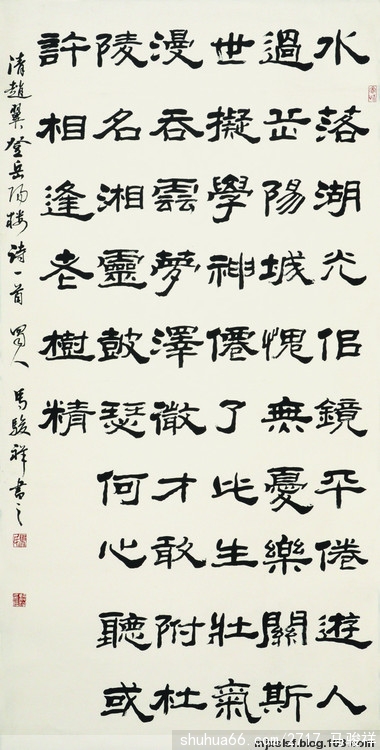 水落湖光佀鏡平倦遊人
過岳陽城愧無憂樂關斯
世擬學神僊了此生壯氣
漫吞雲夢澤微才敢附杜
陵名湘靈鼓瑟何心聽或
許相逢老樹精
清趙翼登岳阳楼诗一首 蜀人 馬駿祥書之
shuhua66.com/2717_马骏祥